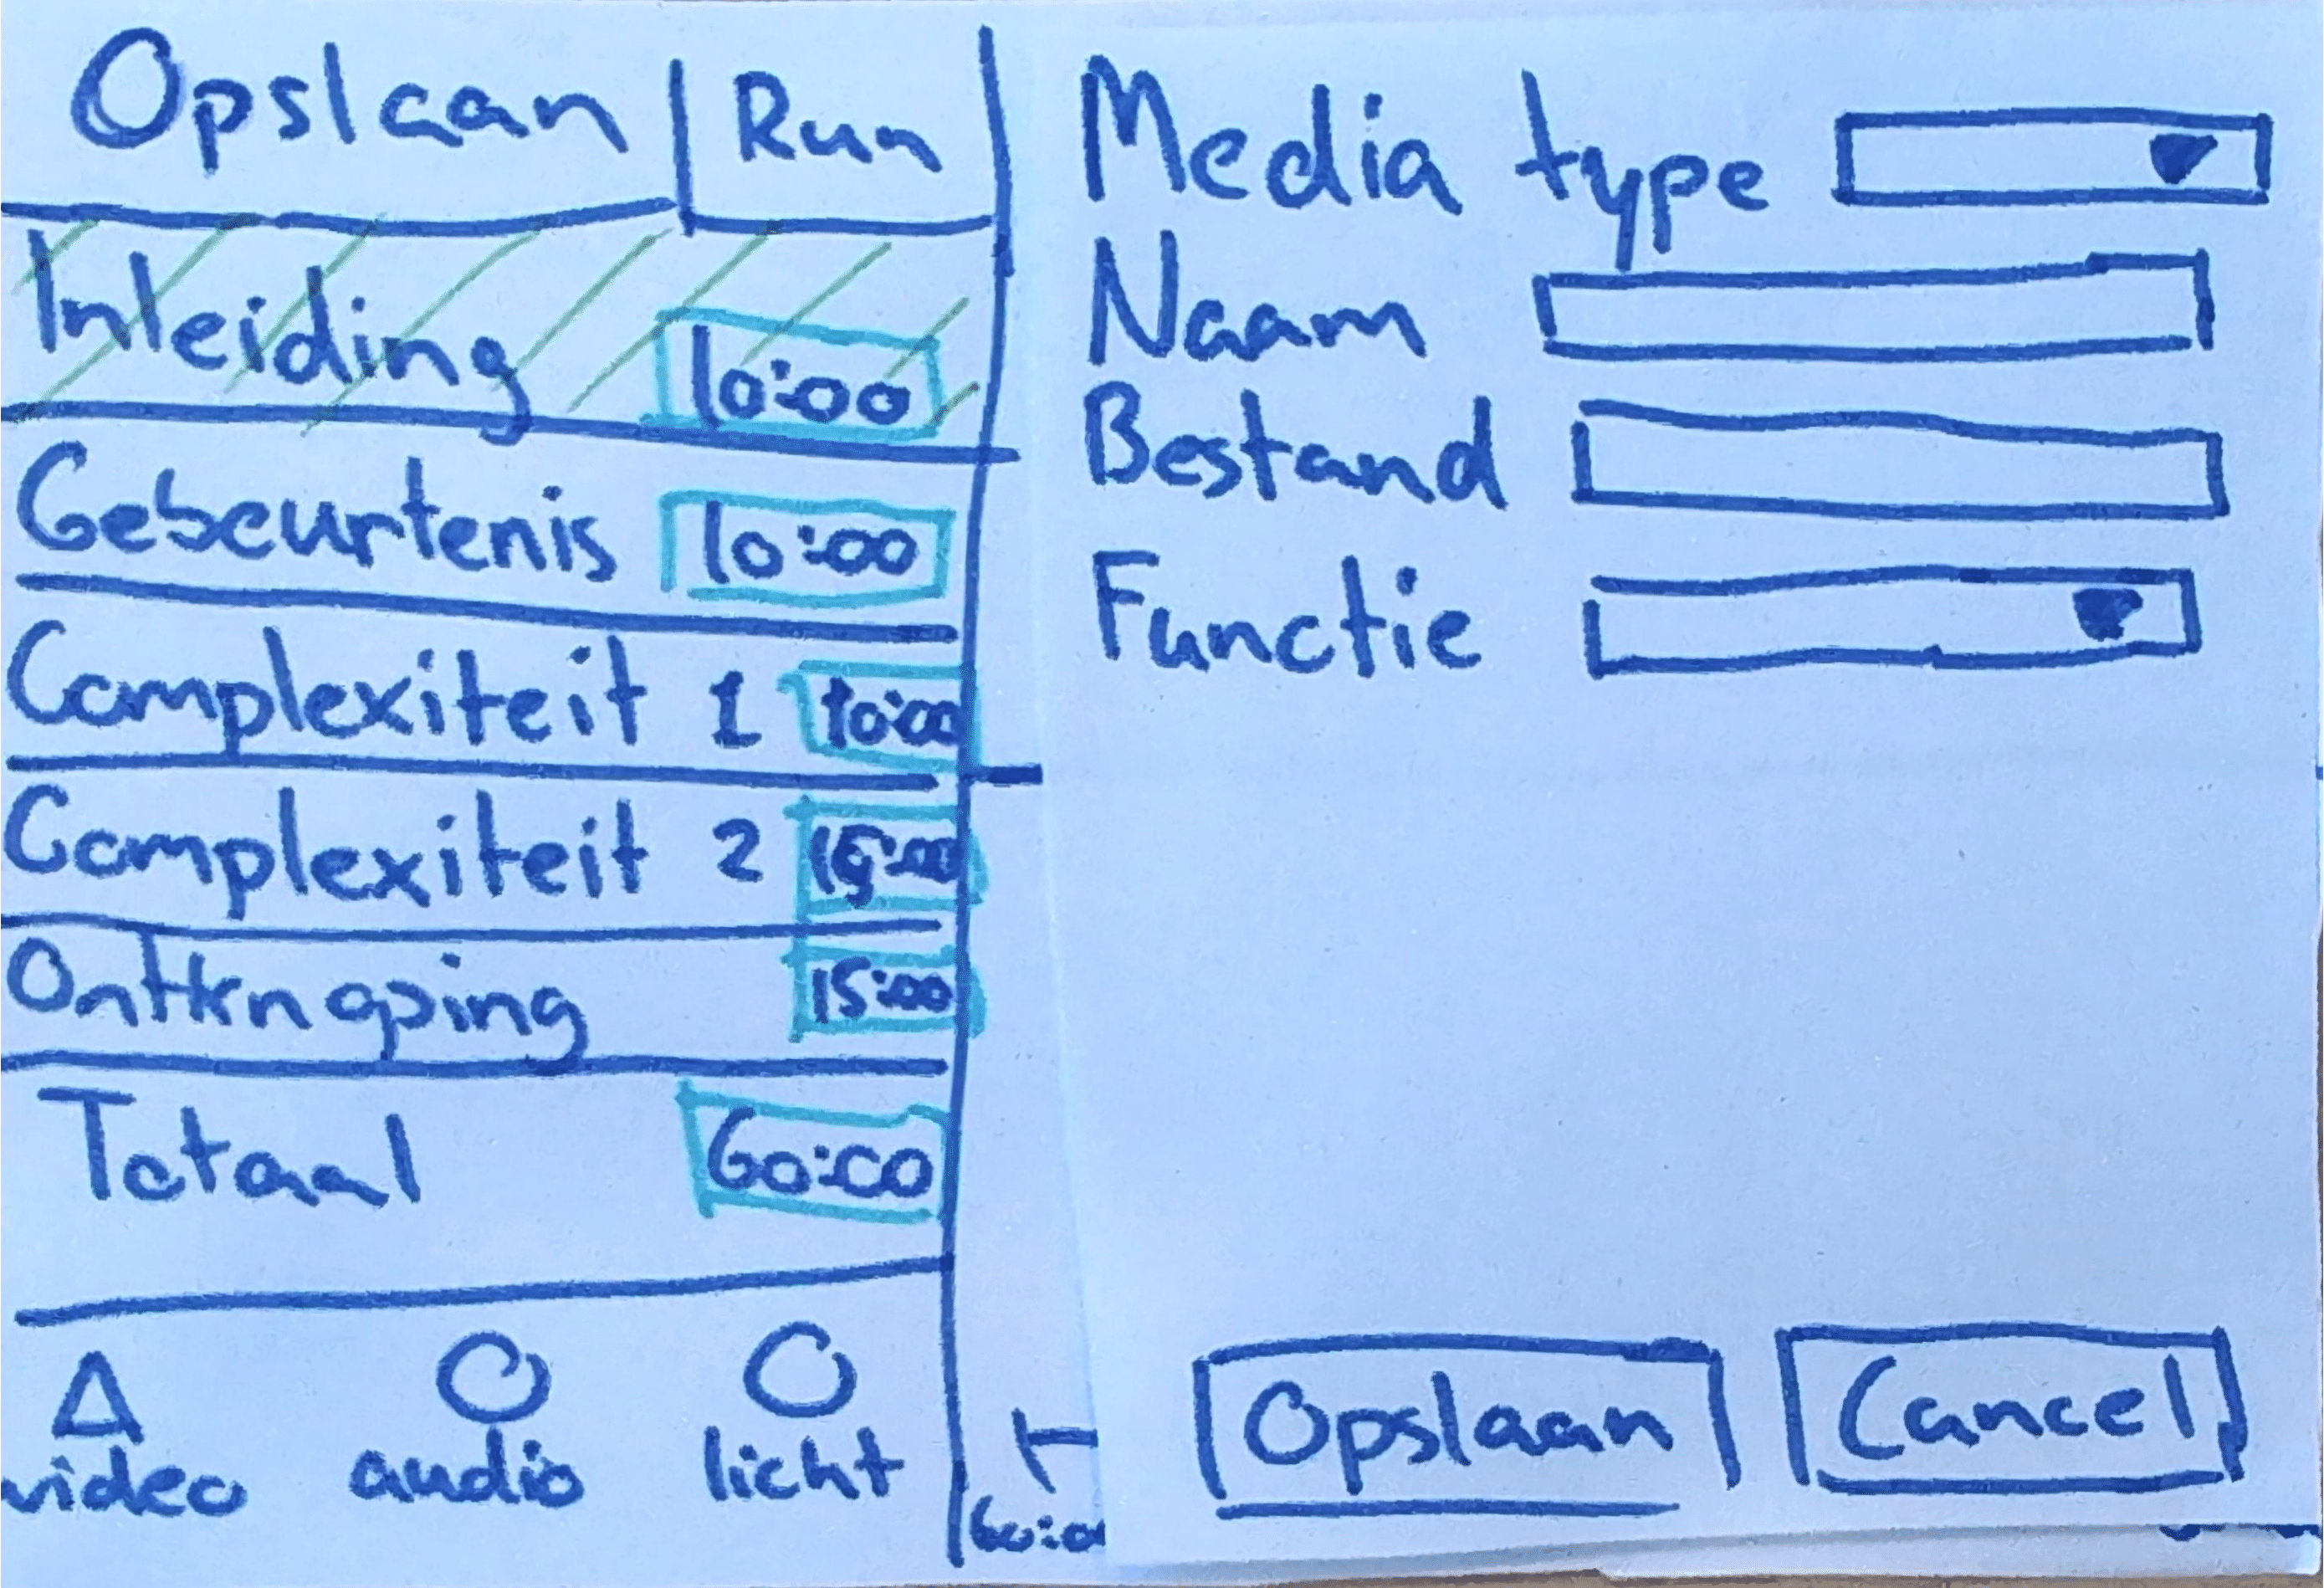 Opslaan Run
Inleiding 10:00
Gebeurtenis 10:00
Complexiteit 1 10:00
Complexiteit 2 15:00
Ontknoping 15:00
Totaal 60:00
video audio licht
60:00
Media type
Naam
Bestand
Functie
Opslaan Cancel